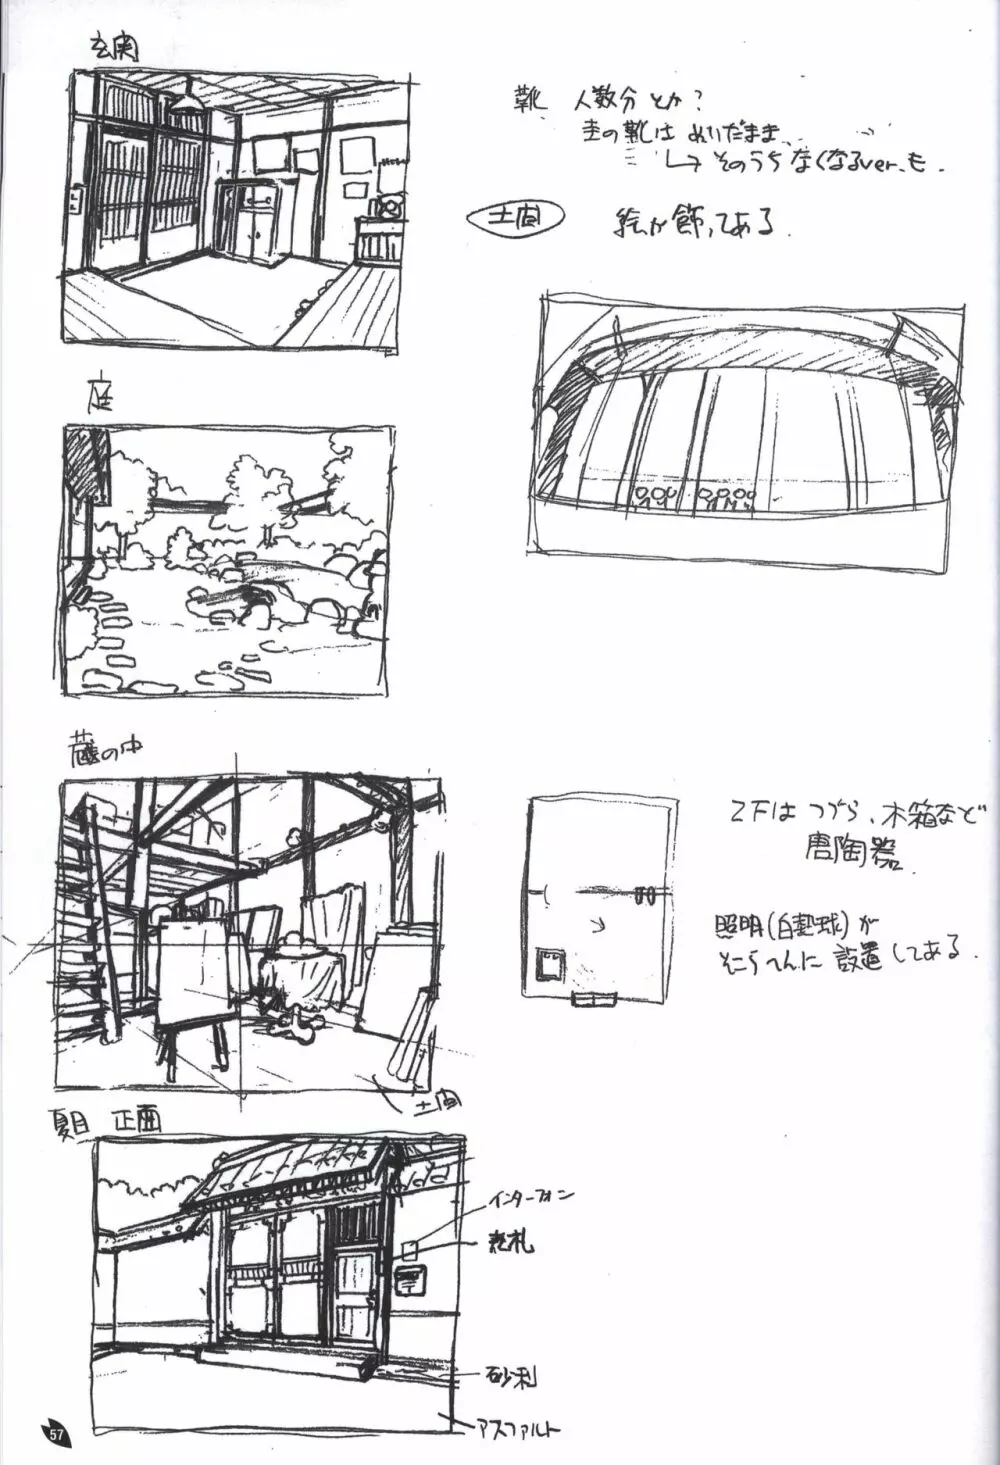 玄関
靴 人数分 とか?
圭の靴は ぬいだまま
↳ そのうち なくなるver.も.
土間
絵が飾ってある.
庭
蔵の中
2Fは つづら、木箱など
唐陶器
照明(白熱球)が
そこらへんに 設置してある.
土間
夏目 正面
インターフォン
表札
砂利
アスファルト
57